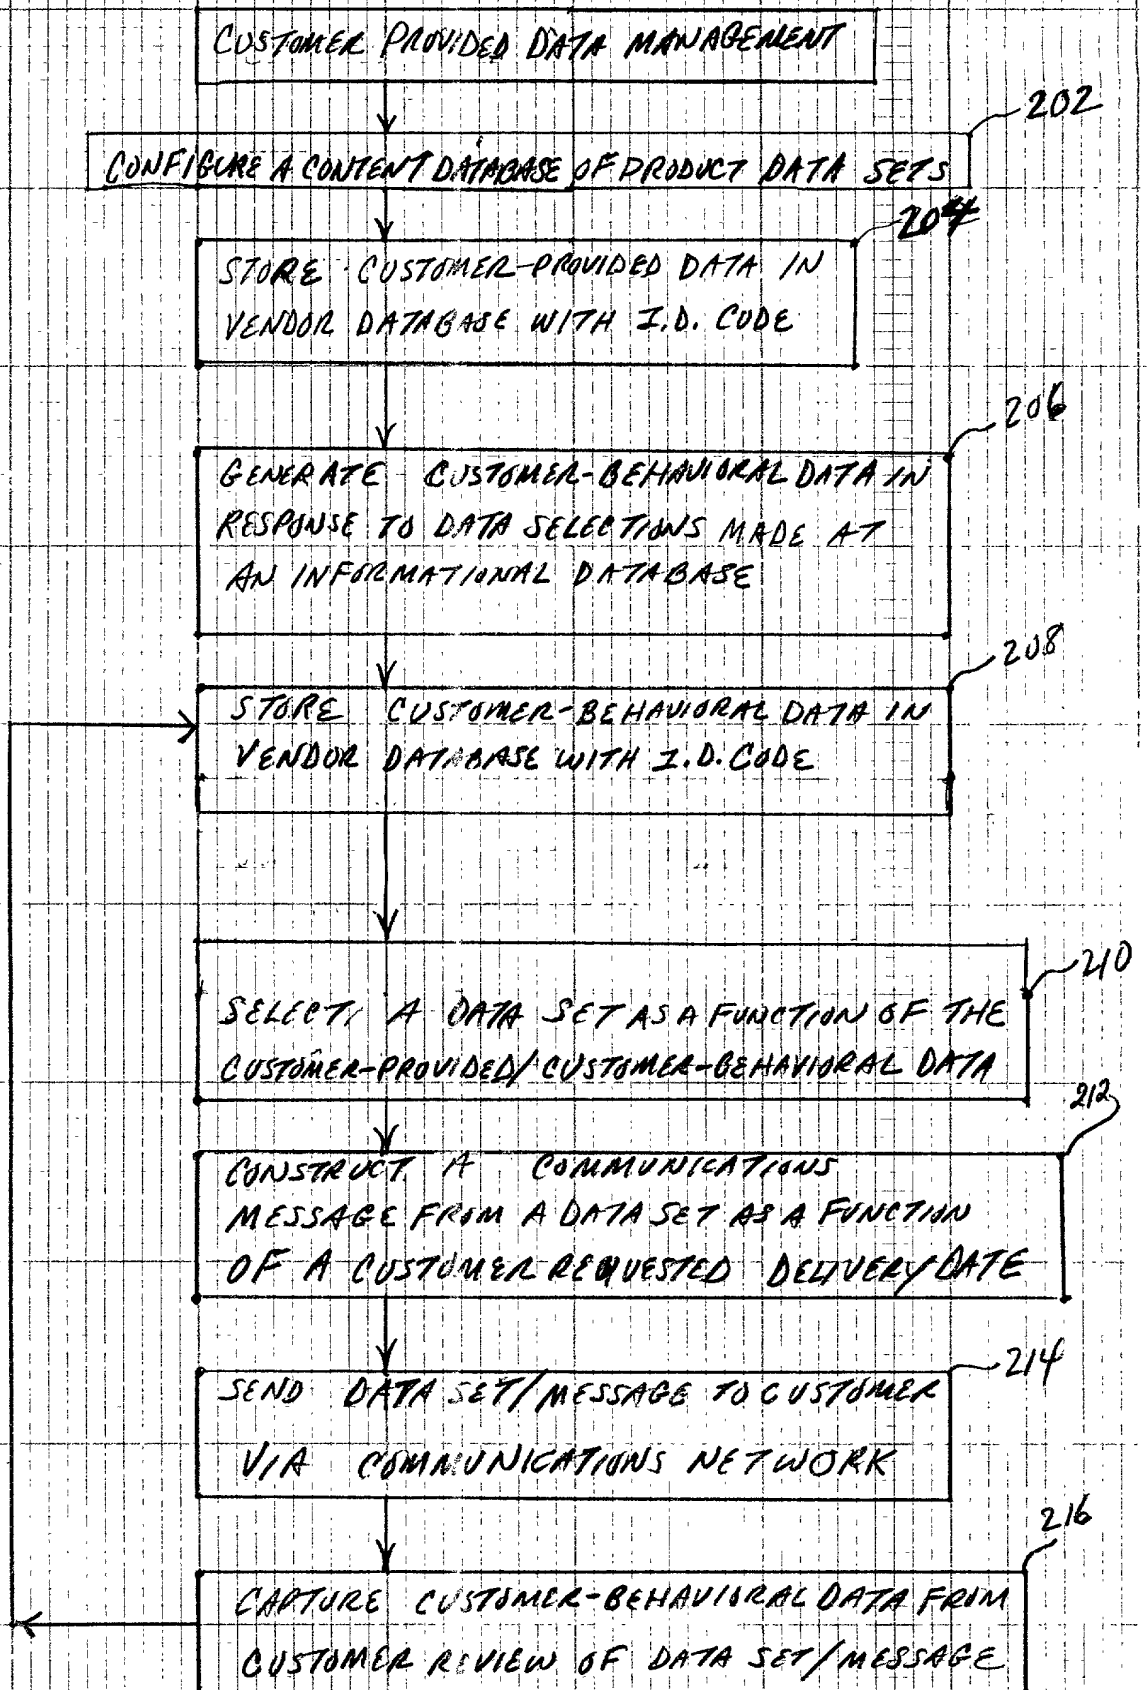 CUSTOMER PROVIDED DATA MANAGEMENT
202
CONFIGURE A CONTENT DATABASE OF PRODUCT DATA SETS
204
STORE CUSTOMER-PROVIDED DATA IN
VENDOR DATABASE WITH I.D. CODE
206
GENERATE CUSTOMER-BEHAVIORAL DATA IN
RESPONSE TO DATA SELECTIONS MADE AT
AN INFORMATIONAL DATABASE
208
STORE CUSTOMER-BEHAVIORAL DATA IN
VENDOR DATABASE WITH I.D. CODE
210
SELECT A DATA SET AS A FUNCTION OF THE
CUSTOMER-PROVIDED/CUSTOMER-BEHAVIORAL DATA
212
CONSTRUCT A COMMUNICATIONS
MESSAGE FROM A DATA SET AS A FUNCTION
OF A CUSTOMER REQUESTED DELIVERY DATE
214
SEND DATA SET/MESSAGE TO CUSTOMER
VIA COMMUNICATIONS NETWORK
216
CAPTURE CUSTOMER-BEHAVIORAL DATA FROM
CUSTOMER REVIEW OF DATA SET/MESSAGE